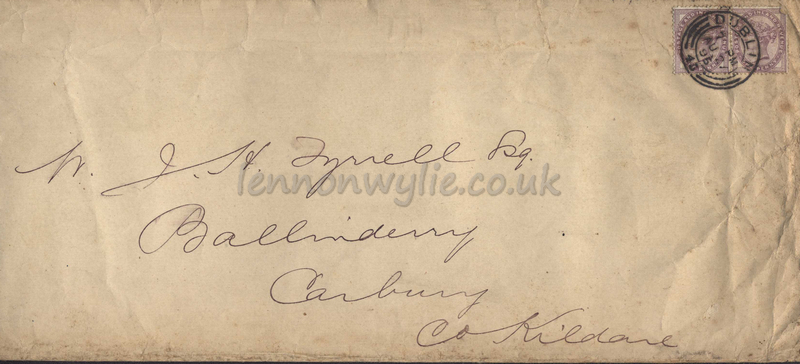 DUBLIN
W. J. H. Tyrrell Esq.
lennonwylie.co.uk
Ballinderry
Carbury
Co Kildare